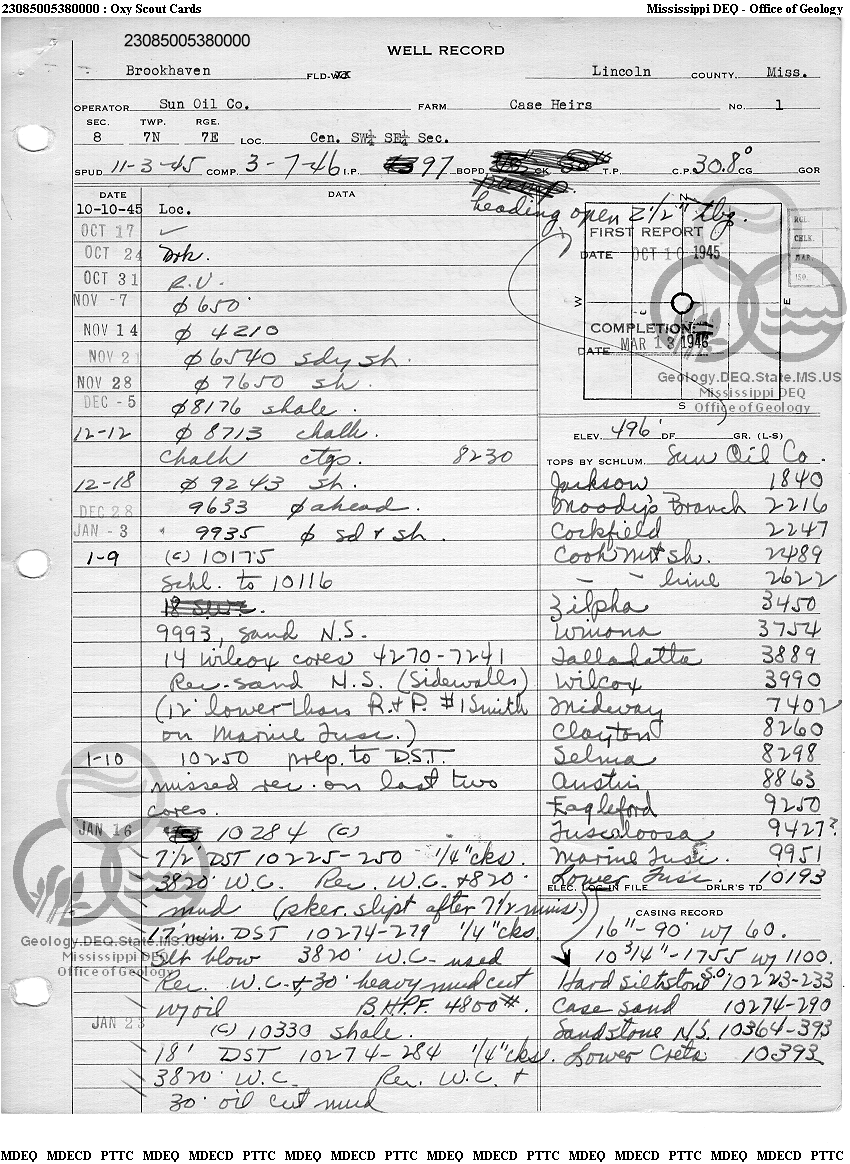 23085005380000 : Oxy Scout Cards Mississippi DEQ - Office of Geology
23085005380000
WELL RECORD
Brookhaven FLD- Lincoln COUNTY Miss.
OPERATOR Sun Oil Co. FARM Case Heirs No. 1
SEC. TWP. RGE.
8 7N 7E LOC. Cen. SW¼ SE¼ Sec.
SPUD 11-3-45 COMP. 3-7-46 I.P. 97 BOPD CK. T.P. C.P. 30.8° CG GOR
pump.
heading open 2½" tbg.
DATE DATA
10-10-45 Loc.
OCT 17 ✓
OCT 24 Drk.
OCT 31 R.U.
NOV -7 ϕ 650'
NOV 14 ϕ 4210
NOV 21 ϕ 6540 sdy sh.
NOV 28 ϕ 7650 sh.
DEC -5 ϕ8176 shale.
12-12 ϕ 8713 chalk.
Chalk ctgs. 8230
12-18 ϕ 9243 sh.
DEC 28 9633 ϕ ahead.
JAN -3 9935 ϕ sd & sh.
1-9 (c) 10175
Schl. to 10116
9993, sand N.S.
14 Wilcox cores 4270-7241
Rec. sand N.S. (Sidewalls)
(12' lower than R.& P. #1 Smith
on Marine Tusc.)
1-10 10250 prep. to D.S.T.
missed rec. on last two
cores.
JAN 16 10284 (c)
7½' DST 10225-250 1/4" cks.
3820' W.C. Rec. W.C. +820'
mud (pker. slipt after 7½ mins.)
17 min. DST 10274-279 1/4" cks.
Slt blow 3820' W.C. used
Rec. W.C. +, 30' heavy mud cut
w/oil B.H.P.F. 4800#.
JAN 23 (c) 10330 shale.
18' DST 10274-284 1/4" cks.
3820' W.C. Rec. W.C. +
30' oil cut mud
N
FIRST REPORT
DATE OCT 10 1945
W E
COMPLETION:
DATE MAR 13 1946
S
RGL.
CHLK.
MAR.
ISO.
Geology.DEQ.State.MS.US
Mississippi DEQ
Office of Geology
ELEV. 496' DF GR. (L-S)
TOPS BY SCHLUM. Sun Oil Co.
Jackson 1840
Moody's Branch 2216
Cockfield 2247
Cook Mt sh. 2489
— — lime 2622
Zilpha 3450
Winona 3754
Tallahatta 3889
Wilcox 3990
Midway 7402
Clayton 8260
Selma 8298
Austin 8863
Eagleford 9250
Tuscaloosa 9427?
Marine Tusc. 9951
Lower Tusc. 10193
ELEC. LOG IN FILE DRLR'S TD
CASING RECORD
16"- 90' w/ 60.
10 3/4"-1755 w/ 1100.
Hard siltstone S.O. 10223-233
Case sand 10274-290
Sandstone N.S. 10364-393
Lower Creta 10393
Geology.DEQ.State.MS.US
Mississippi DEQ
Office of Geology
MDEQ MDECD PTTC MDEQ MDECD PTTC MDEQ MDECD PTTC MDEQ MDECD PTTC MDEQ MDECD PTTC MDEQ MDECD PTTC